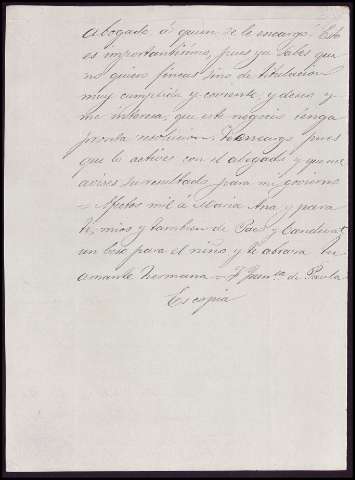 abogado á quien se le encargó. Esto
es importantísimo, pues ya sabes que
no quiero fincas sino de titulacion
muy cumplida y corriente, y deseo y
me interesa, que este negocio tenga
pronta resolucion. Te encargo pues
que le actives con el abogado y que me
avises su resultado para mi govierno
= Afectos mil á Maria Ana, y para
ti, mios y tambien de Paca y Candida
un beso para el niño y te abraza tu
amante hermana = F. Franca de Paula
Es copia